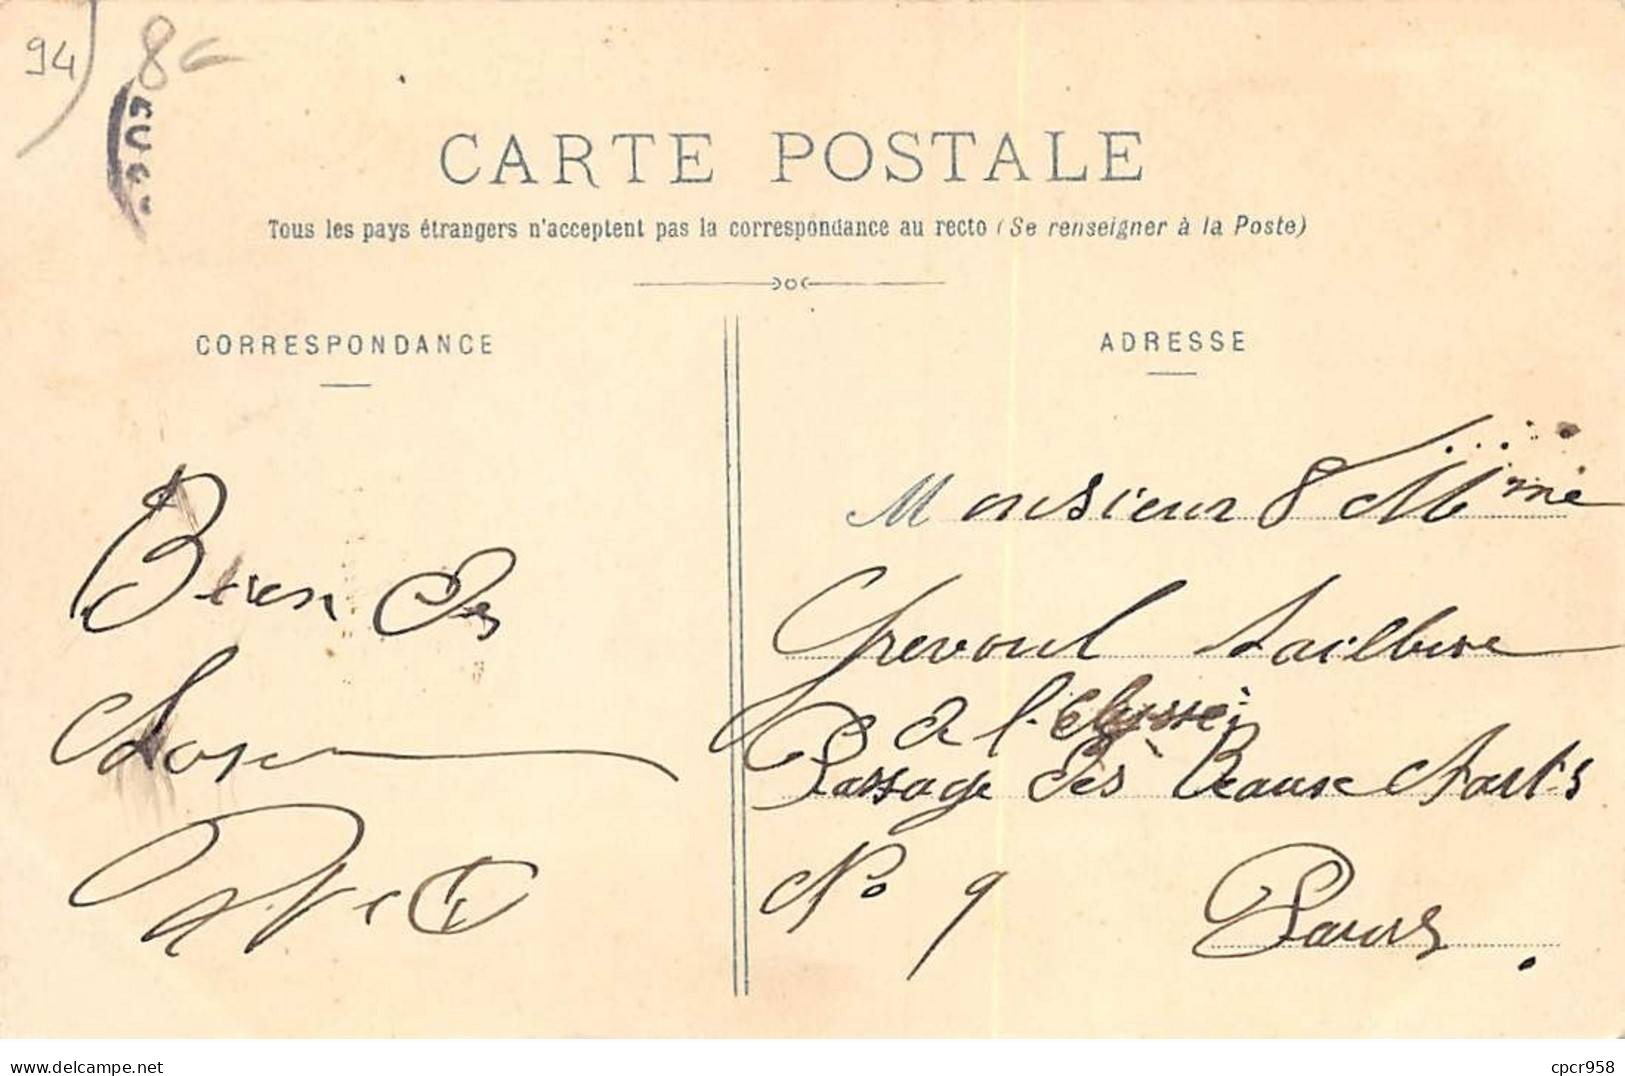 94
8
CARTE POSTALE
Tous les pays étrangers n'acceptent pas la correspondance au recto (Se renseigner à la Poste)
CORRESPONDANCE
Bien des
choses
ADRESSE
Monsieur & Mme
Grevoul
à l'
Passage des Beaux Arts
No 9 Paris.
delcampe.net
cpcr958